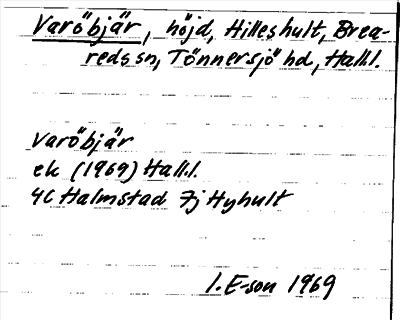 Varöbjär, höjd, Hilleshult, Brea-
reds sn, Tönnersjö hd, Hall.
Varöbjär
ek (1969) Hall.
4C Halmstad 7j Hyhult
I. E-son 1969